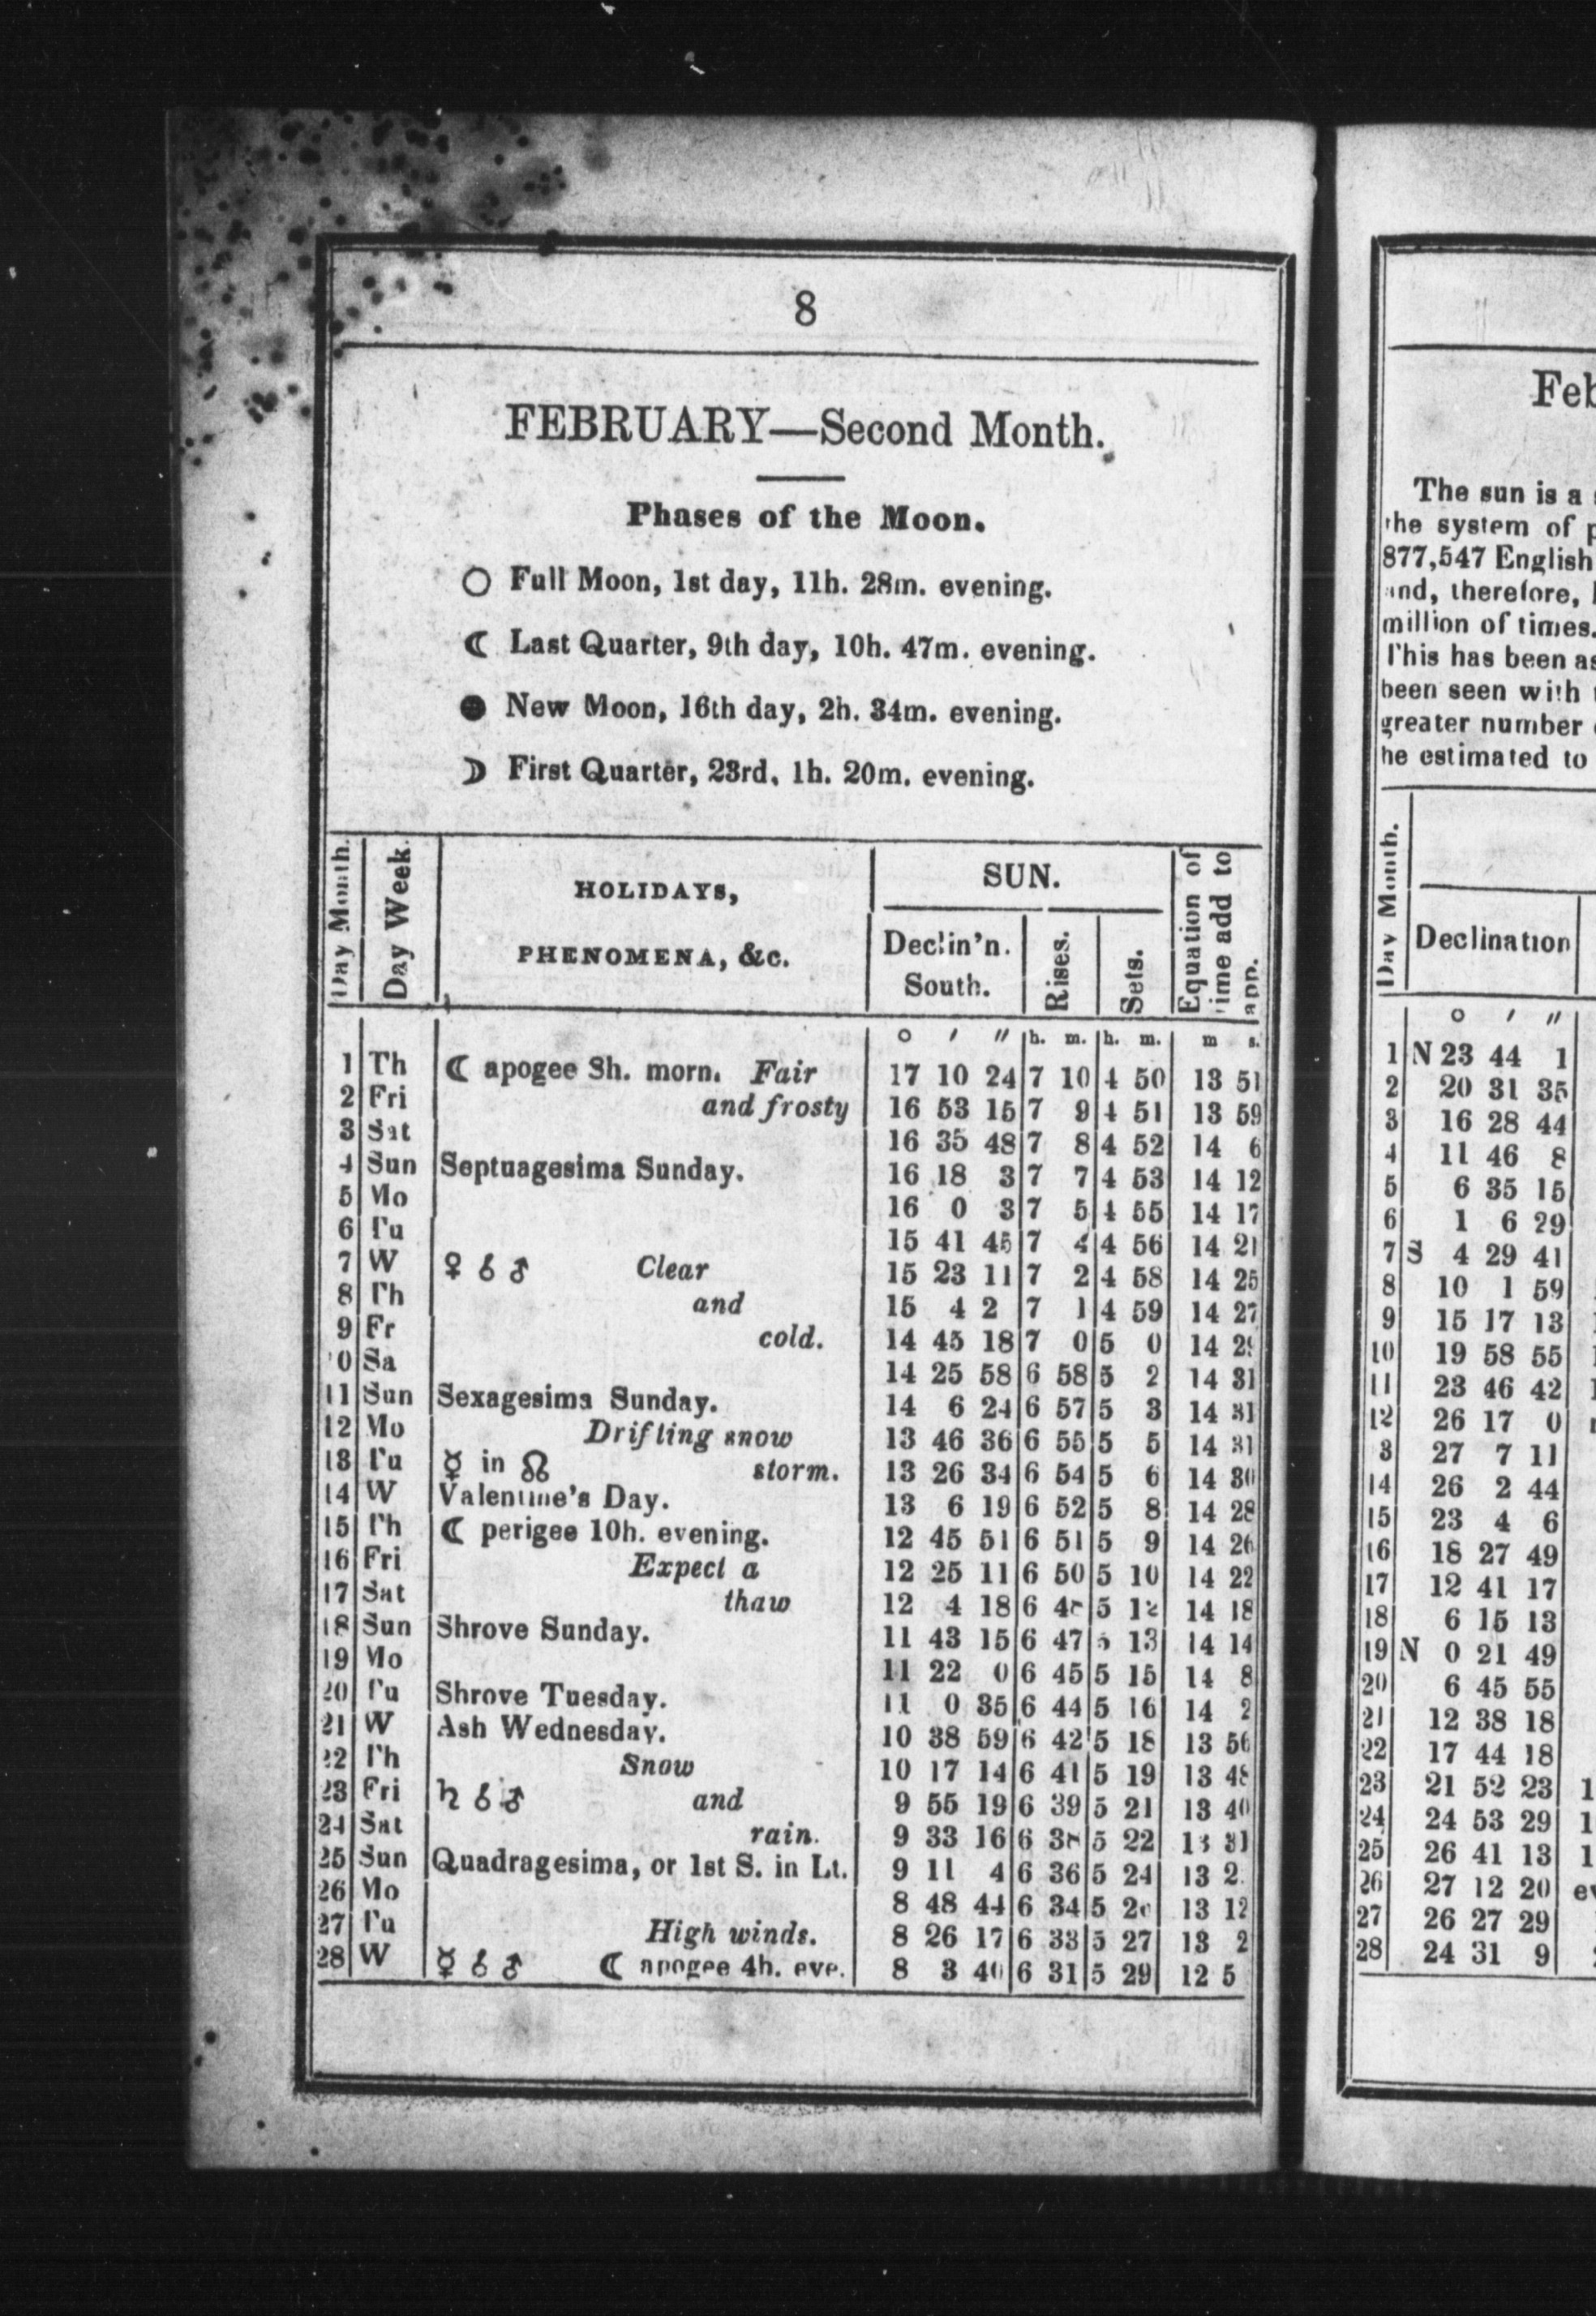 8
FEBRUARY—Second Month.
Phases of the Moon.
○ Full Moon, 1st day, 11h. 28m. evening.
☾ Last Quarter, 9th day, 10h. 47m. evening.
● New Moon, 16th day, 2h. 34m. evening.
☽ First Quarter, 23rd, 1h. 20m. evening.
Day Month. Day Week. HOLIDAYS, PHENOMENA, &c. SUN. Declin'n. South. Rises. Sets. Equation of time add to app.
o ' " h. m. h. m. m s.
1 Th ☾ apogee 8h. morn. Fair 17 10 24 7 10 4 50 13 51
2 Fri and frosty 16 53 15 7 9 4 51 13 59
3 Sat 16 35 48 7 8 4 52 14 6
4 Sun Septuagesima Sunday. 16 18 3 7 7 4 53 14 12
5 Mo 16 0 3 7 5 4 55 14 17
6 Tu 15 41 45 7 4 4 56 14 21
7 W ♀ ☌ ♂ Clear 15 23 11 7 2 4 58 14 25
8 Th and 15 4 2 7 1 4 59 14 27
9 Fr cold. 14 45 18 7 0 5 0 14
0 Sa 14 25 58 6 58 5 2 14 31
11 Sun Sexagesima Sunday. 14 6 24 6 57 5 3 14 31
12 Mo Drifting snow 13 46 36 6 55 5 5 14 31
13 Tu ☿ in ☊ storm. 13 26 34 6 54 5 6 14 30
14 W Valentine's Day. 13 6 19 6 52 5 8 14 28
15 Th ☾ perigee 10h. evening. 12 45 51 6 51 5 9 14 26
16 Fri Expect a 12 25 11 6 50 5 10 14 22
17 Sat thaw 12 4 18 6 5 12 14 18
18 Sun Shrove Sunday. 11 43 15 6 47 5 13 14 14
19 Mo 11 22 0 6 45 5 15 14 8
20 Tu Shrove Tuesday. 11 0 35 6 44 5 16 14 2
21 W Ash Wednesday. 10 38 59 6 42 5 18 13 56
22 Th Snow 10 17 14 6 41 5 19 13 48
23 Fri ♄ ☌ ♂ and 9 55 19 6 39 5 21 13 40
24 Sat rain. 9 33 16 6 38 5 22 13 31
25 Sun Quadragesima, or 1st S. in Lt. 9 11 4 6 36 5 24 13 2
26 Mo 8 48 44 6 34 5 13 12
27 Tu High winds. 8 26 17 6 33 5 27 13 2
28 W ☿ ☌ ♂ ☾ apogee 4h. eve. 8 3 40 6 31 5 29 12 5
Feb
The sun is a
the system of p
877,547 English
and, therefore,
million of times.
This has been as
been seen with
greater number
be estimated to
Day Month. Declination
o ' "
1 N 23 44 1
2 20 31 35
3 16 28 44
4 11 46 8
5 6 35 15
6 1 6 29
7 S 4 29 41
8 10 1 59
9 15 17 13
10 19 58 55
11 23 46 42
12 26 17 0
3 27 7 11
14 26 2 44
15 23 4 6
16 18 27 49
17 12 41 17
18 6 15 13
19 N 0 21 49
20 6 45 55
21 12 38 18
22 17 44 18
23 21 52 23 1
24 24 53 29 1
25 26 41 13 1
26 27 12 20 ev
27 26 27 29
28 24 31 9